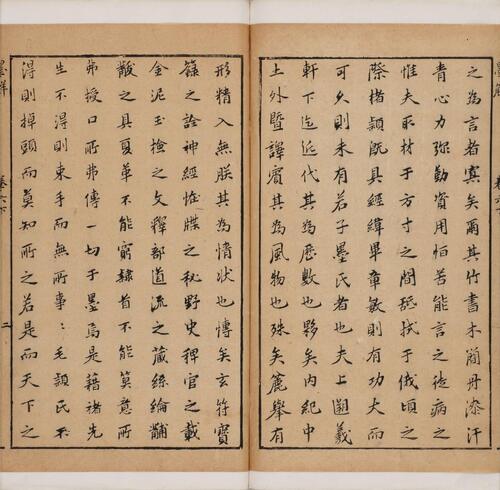 之為言者寡矣爾其竹書木簡漆汗
青心力弥勤資用怕苦能言之徒病之
惟夫取材于方寸之間舐拭于俄頃之
際楮穎既具經緯畢章敏則有功大而
可久則未有若子墨氏者也夫上遡羲
軒下迄近代其為歷數也夥矣內紀中
土外暨譯賓其為風物也殊矣麤舉有
形精入無朕其為情狀也愽矣玄符寶
籙之詮神經恠牒之秘野史稗官之載
金泥玉撿之文釋部道流之蔵絲綸黼
黻之具夏革不能窮隸首不能算意所
弗授口所弗傳一切于墨焉是藉諸先
生不得則束手而無所事〻毛頴氏不
得則掉頭而莫知所之若是而天下之
二